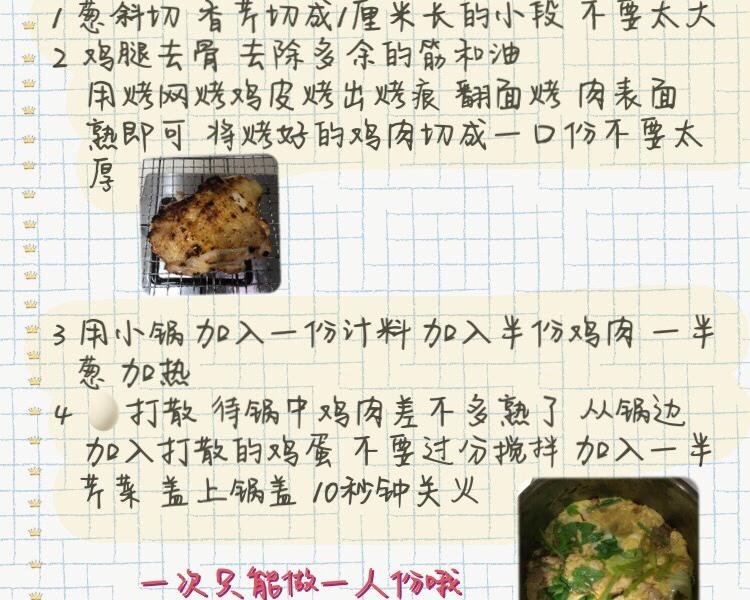 1 葱斜切 香芹切成1厘米长的小段 不要太大
2 鸡腿去骨 去除多余的筋和油
用烤网烤鸡皮烤出烤痕 翻面烤 肉表面
熟即可 将烤好的鸡肉切成一口份不要太
厚
3 用小锅 加入一份汁料 加入半份鸡肉 一半
葱 加热
4 打散 待锅中鸡肉差不多熟了 从锅边
加入打散的鸡蛋 不要过分搅拌 加入一半
芹菜 盖上锅盖 10秒钟关火
一次只能做一人份哦